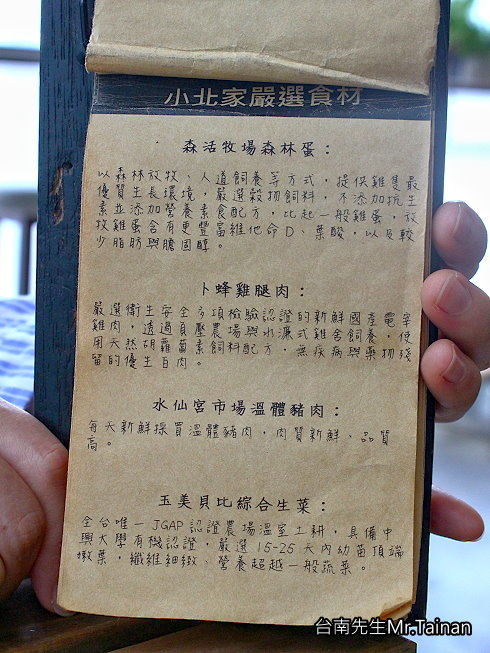 小北家嚴選食材
森活牧場森林蛋：
以森林放牧、人道飼養等方式，提供雞隻最
優質生長環境，嚴選穀物飼料，不添加抗生
素並添加營養素食配方，比起一般雞蛋，放
牧雞蛋含有更豐富維他命D、葉酸，以及較
少脂肪與膽固醇。
卜蜂雞腿肉：
嚴選衛生安全多項檢驗認證的新鮮國產電宰
雞肉，透過負壓農場與水濂式雞舍飼養，使
用天然胡蘿蔔素飼料配方，無疾病與藥物殘
留的優生白肉。
水仙宮市場溫體豬肉：
每天新鮮採買溫體豬肉，肉質新鮮、品質
高。
玉美貝比綜合生菜：
全台唯一JGAP認證農場溫室土耕，具備中
興大學有機認證，嚴選15-25天內幼苗頂端
嫩葉，纖維細緻、營養超越一般蔬菜。
台南先生Mr.Tainan